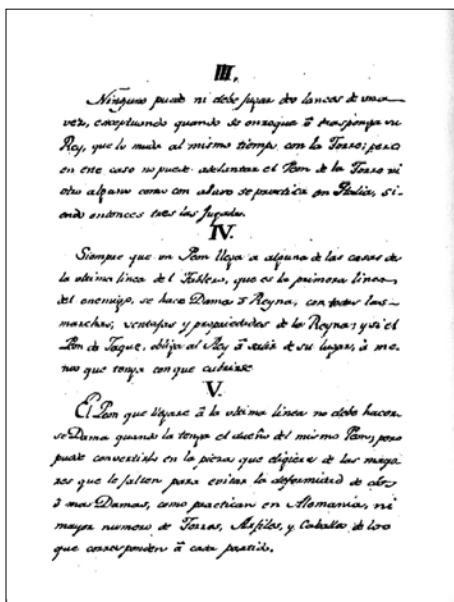 III.
Ninguno puede ni debe jugar dos lances de una
vez, exceptuando quando se enroque ō trasponga su
Rey, que lo muda al mismo tiempo con la Torre; pero
en este caso no puede adelantar el Peon de la Torre ni
otro alguno como con abuso se practica en Italia, si-
endo entonces tres las jugadas.
IV.
Siempre que un Peon llega a alguna de las casas de
la ultima linea del Tablero, que es la primera linea
del enemigo, se hace Dama ō Reyna, con todas las
marchas, ventajas y propiedades de la Reyna; y si el
Peon da Jaque, obliga al Rey ā salir de su lugar, ā me-
nos que tenga con que cubrirse
V.
El Peon que llegare ā la ultima linea no debe hacer-
se Dama quando la tenga el dueño del mismo Peon; pero
puede convertirlo en la pieza que eligiere de las mayo-
res que le falten para evitar la deformidad de dos
ō mas Damas, como practican en Alemania, ni
mayor numero de Torres, Arfiles, y Caballos de los
que corresponden ā cada partido.